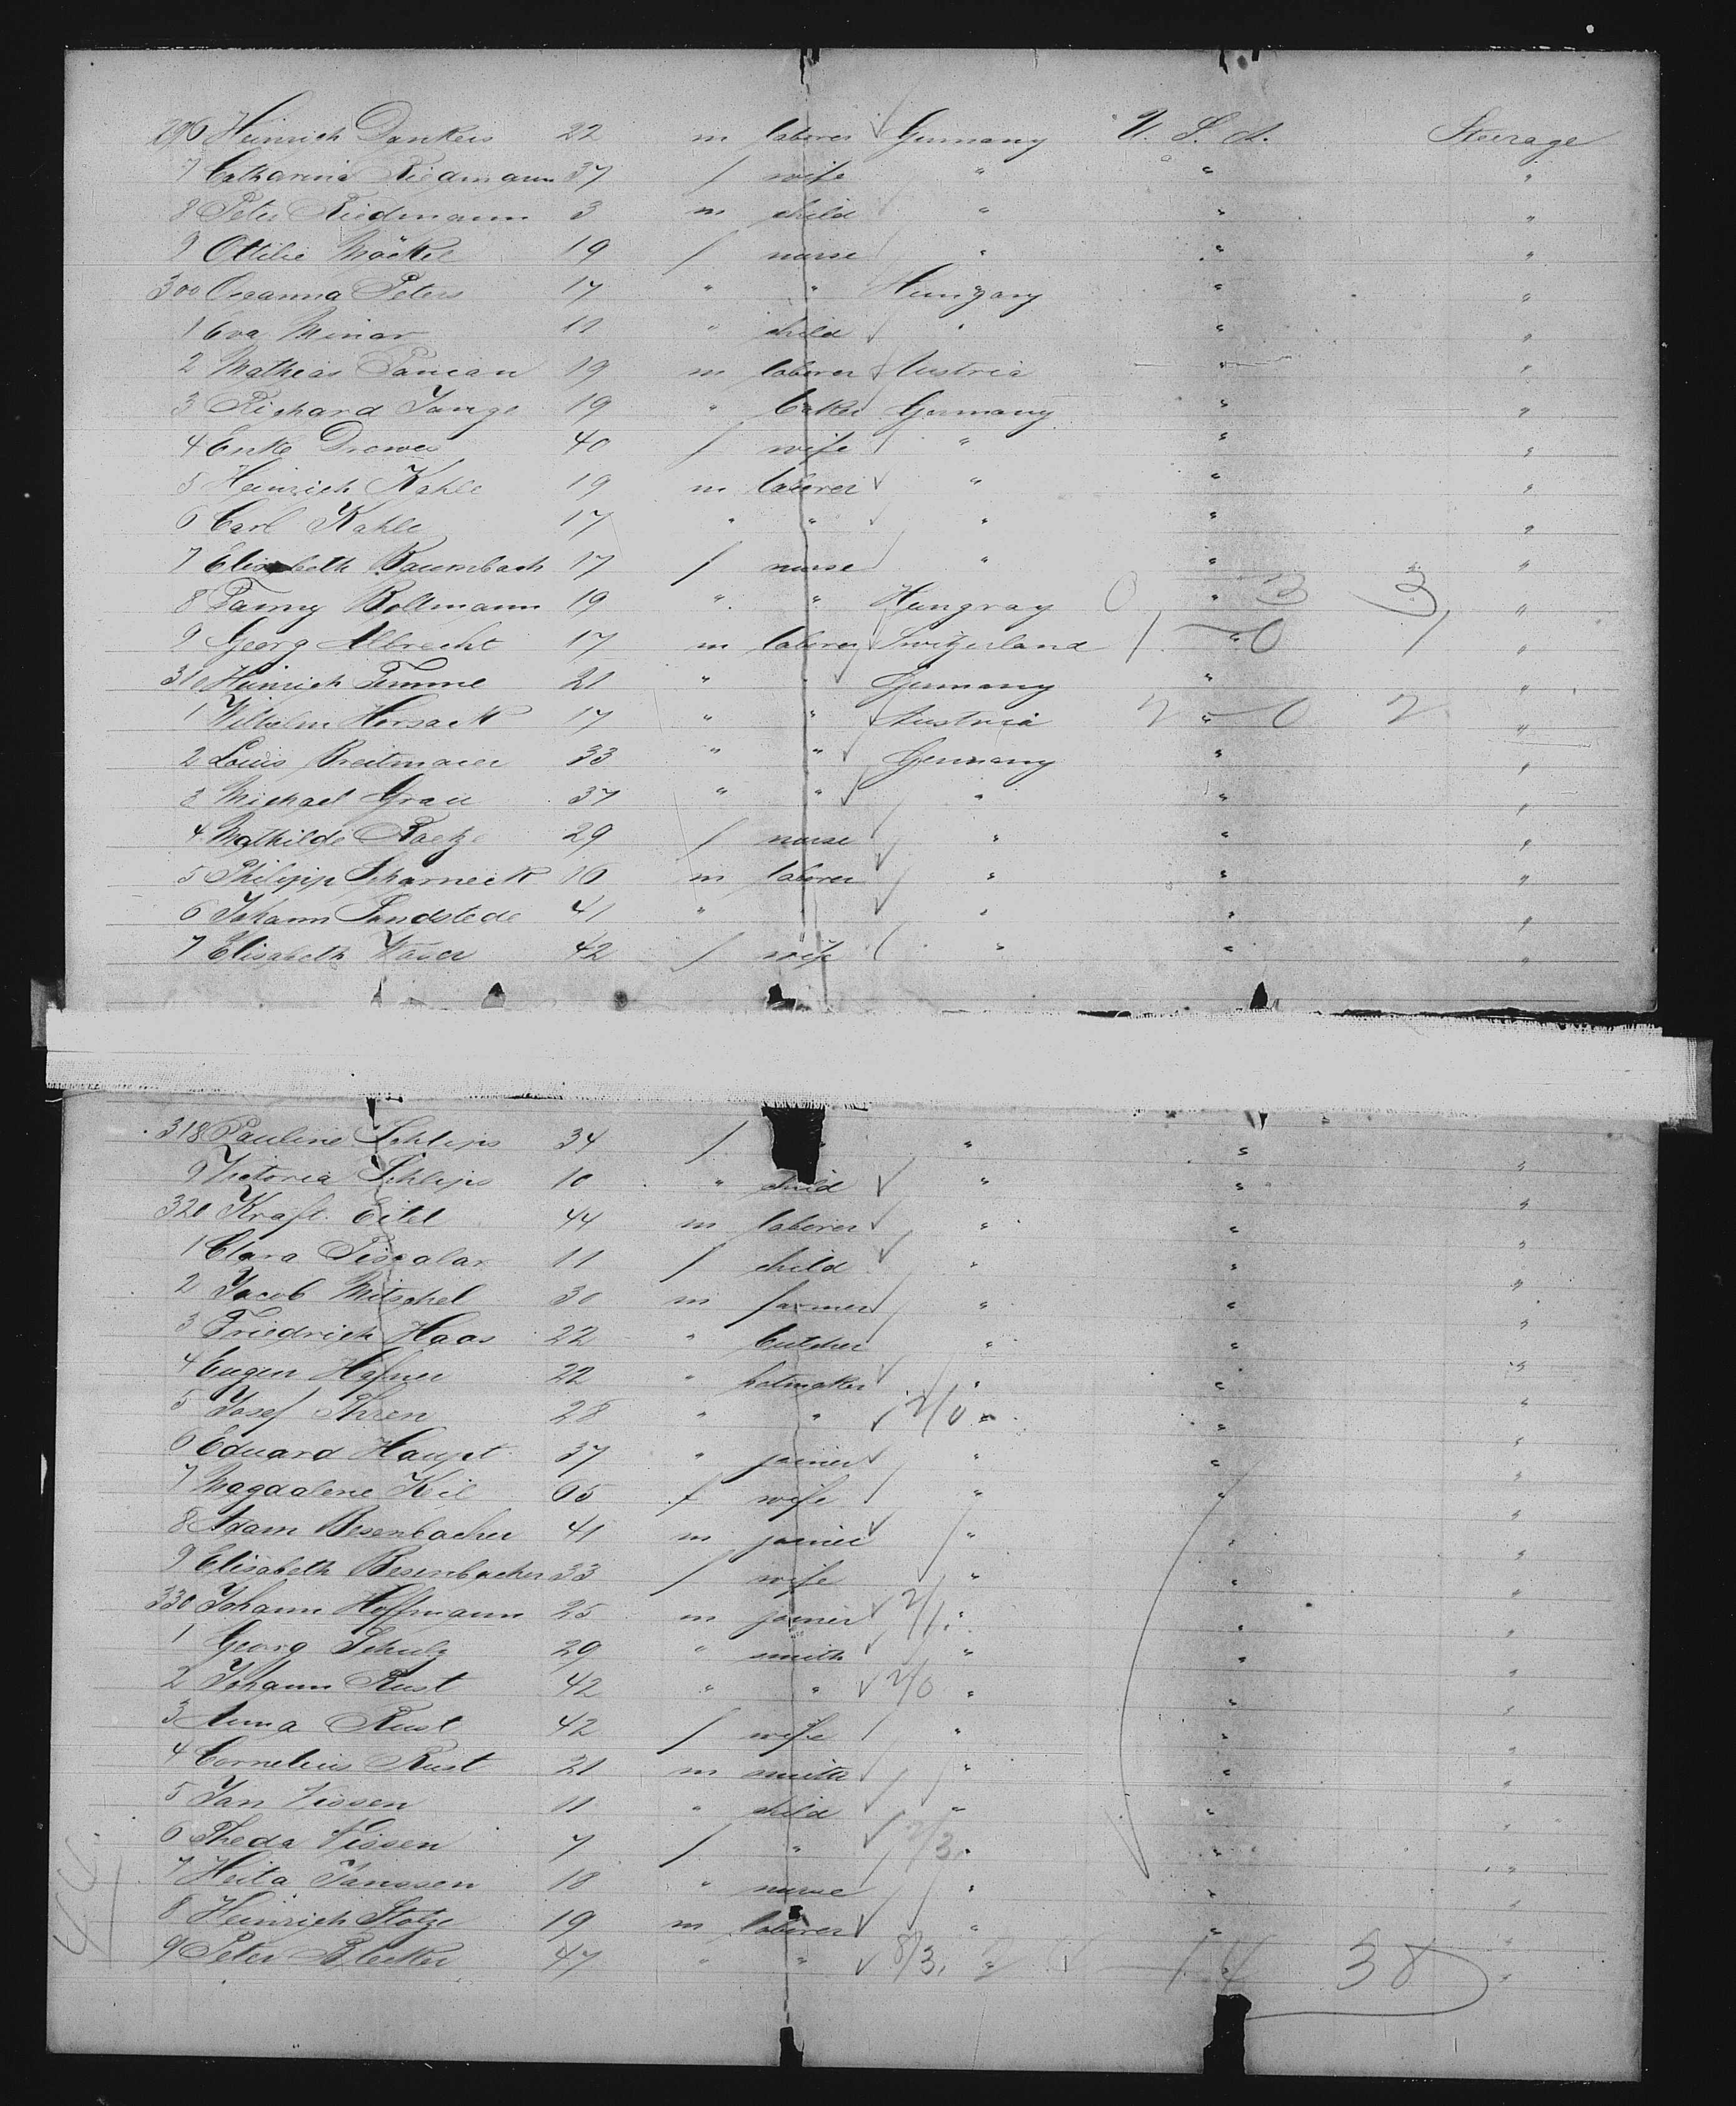 296 Heinrich Dankers 22 m laborer Germany U. S. A. Steerage
7 Catharina Riedmann 37 f wife " " "
8 Peter Riedmann 3 m child " " "
9 Ottilie 19 f nurse " " "
300 Peters 17 " " Hungary " "
1 Eva Minar 11 " child " " "
2 Mathias 19 m laborer Austria " "
3 Richard Junge 19 " baker Germany " "
4 Drewes 40 f wife " " "
5 Heinrich Kahle 19 m laborer " " "
6 Carl Kahle 17 " " " " "
7 Elisabeth Baumbach 17 f nurse " " "
8 Fanny Bollmann 19 " " Hungray 0 " 3 3 "
9 Georg Albrecht 17 m laborer Switzerland 1 " 0 1 "
310 Heinrich Temme 21 " " Germany " "
1 Wilhelm Horsack 17 " " Austria 2 " 0 2 "
2 Louis Breitmaier 33 " " Germany " "
3 Michael Grau 37 " " " " "
4 Mathilde Raetze 29 f nurse " " "
5 Philipp Scharneck 16 m laborer " " "
6 Johann Sandstede 41 " " " " "
7 Elisabeth Waser 42 f wife " " "
318 Pauline Schlips 34 f " " " "
9 Victoria Schlips 10 " child " " "
320 Kraft Eitel 44 m laborer " " "
1 Clara Piscalar 11 f child " " "
2 Jacob Mitschel 30 m farmer " " "
3 Friedrich Haas 22 " butcher " " "
4 Eugen Hafner 22 " hatmaker " " "
5 Josef 28 " " 2/0 " " "
6 Eduard Haupt 37 " joiner " " "
7 Magdalene Keil 65 f wife " " "
8 Adam Besenbacher 41 m joiner " " "
9 Elisabeth Besenbacher 33 f wife " " "
330 Johann Hoffmann 25 m joiner 2/1 " " "
1 Georg Schulz 29 " smith " " "
2 Johann Rust 42 " " 2/0 " " "
3 Anna Rust 42 f wife " " "
4 Cornelius Rust 21 m smith " " "
5 Jan Vissen 11 " child " " "
6 Theda Vissen 7 f " 2/3 " " "
7 Janssen 18 " nurse " " "
8 Heinrich Stolze 19 m laborer " " "
9 Peter 47 " " 8/3 " " 38 "